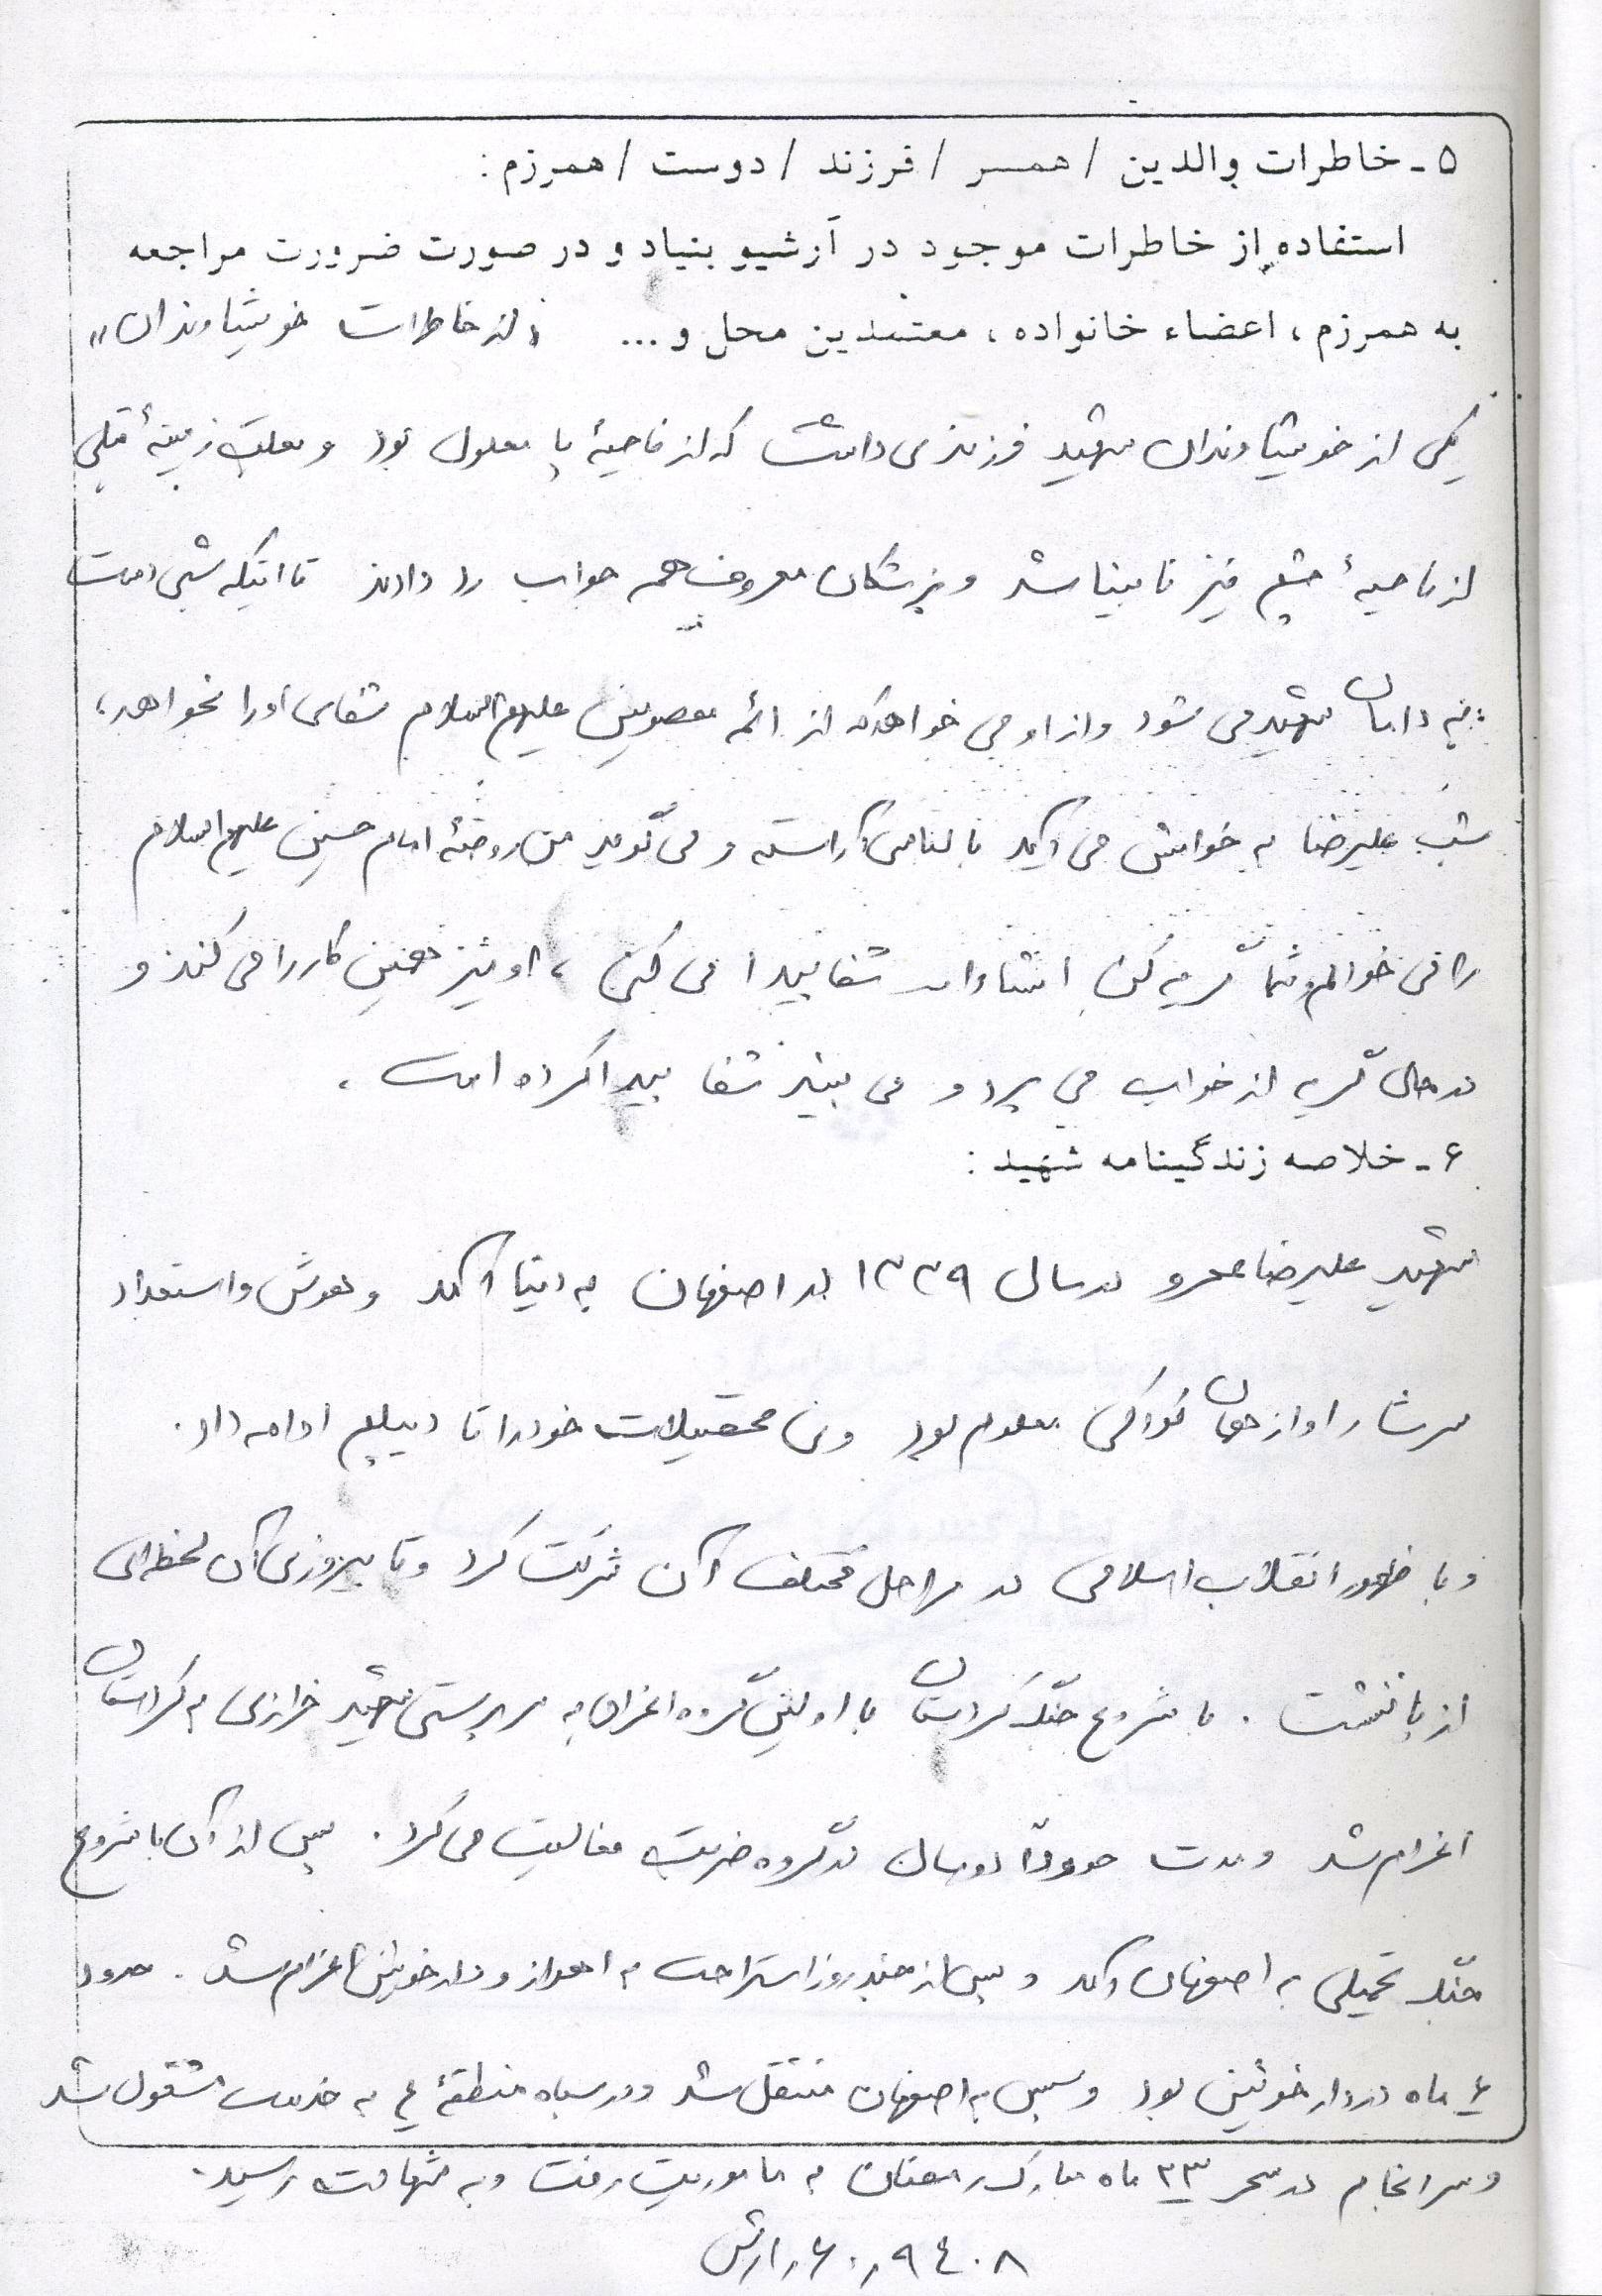 ۵ - خاطرات والدین / همسر / فرزند / دوست / همرزم :
استفاده از خاطرات موجود در آرشیو بنیاد و در صورت ضرورت مراجعه
به همرزم ، اعضاء خانواده ، معتمدین محل و ... «از خاطرات خویشاوندان»
یکی از خویشاوندان شهید فرزندی داشت که از ناحیهٔ پا معلول بود و بعلت زمینهٔ قبلی
از ناحیهٔ چشم نیز نابینا شد و پزشکان معروف همه جواب رد دادند تا اینکه شبی دست
به دامان شهید می شود و از او می خواهد که از ائمه معصومین علیهم السلام شفای او را بخواهد،
شب علیرضا به خوابش می آید با لباسی آراسته و می گوید من روضهٔ امام حسین علیه السلام
را می خوانم و شما گریه کن انشاءالله شفا پیدا می کنی ، او نیز همین کار را می کند و
در حال گریه از خواب می پرد و می بیند شفا پیدا کرده است .
۶ - خلاصه زندگینامه شهید :
شهید علیرضا عمرو در سال ۱۳۳۹ در اصفهان به دنیا آمد و هوش و استعداد
سرشار او از همان کودکی معلوم بود وی تحصیلات خود را تا دیپلم ادامه داد .
و با ظهور انقلاب اسلامی در مراحل مختلف آن شرکت کرد و تا پیروزی آن لحظه‌ای
از پا ننشست . با شروع جنگ کردستان با اولین گروه اعزامی به سرپرستی شهید خرازی به کردستان
اعزام شد و مدت حدوداً دو سال در گروه ضربت فعالیت می کرد . پس از آن با شروع
جنگ تحمیلی به اصفهان آمد و پس از چند روز استراحت به اهواز و دارخوئین اعزام شد . حدود
۶ ماه در دارخوئین بود و سپس به اصفهان منتقل شد و در سپاه منطقهٔ ۲ به خدمت مشغول شد
و سرانجام در سحر ۲۳ ماه مبارک رمضان به ماموریت رفت و به شهادت رسید .